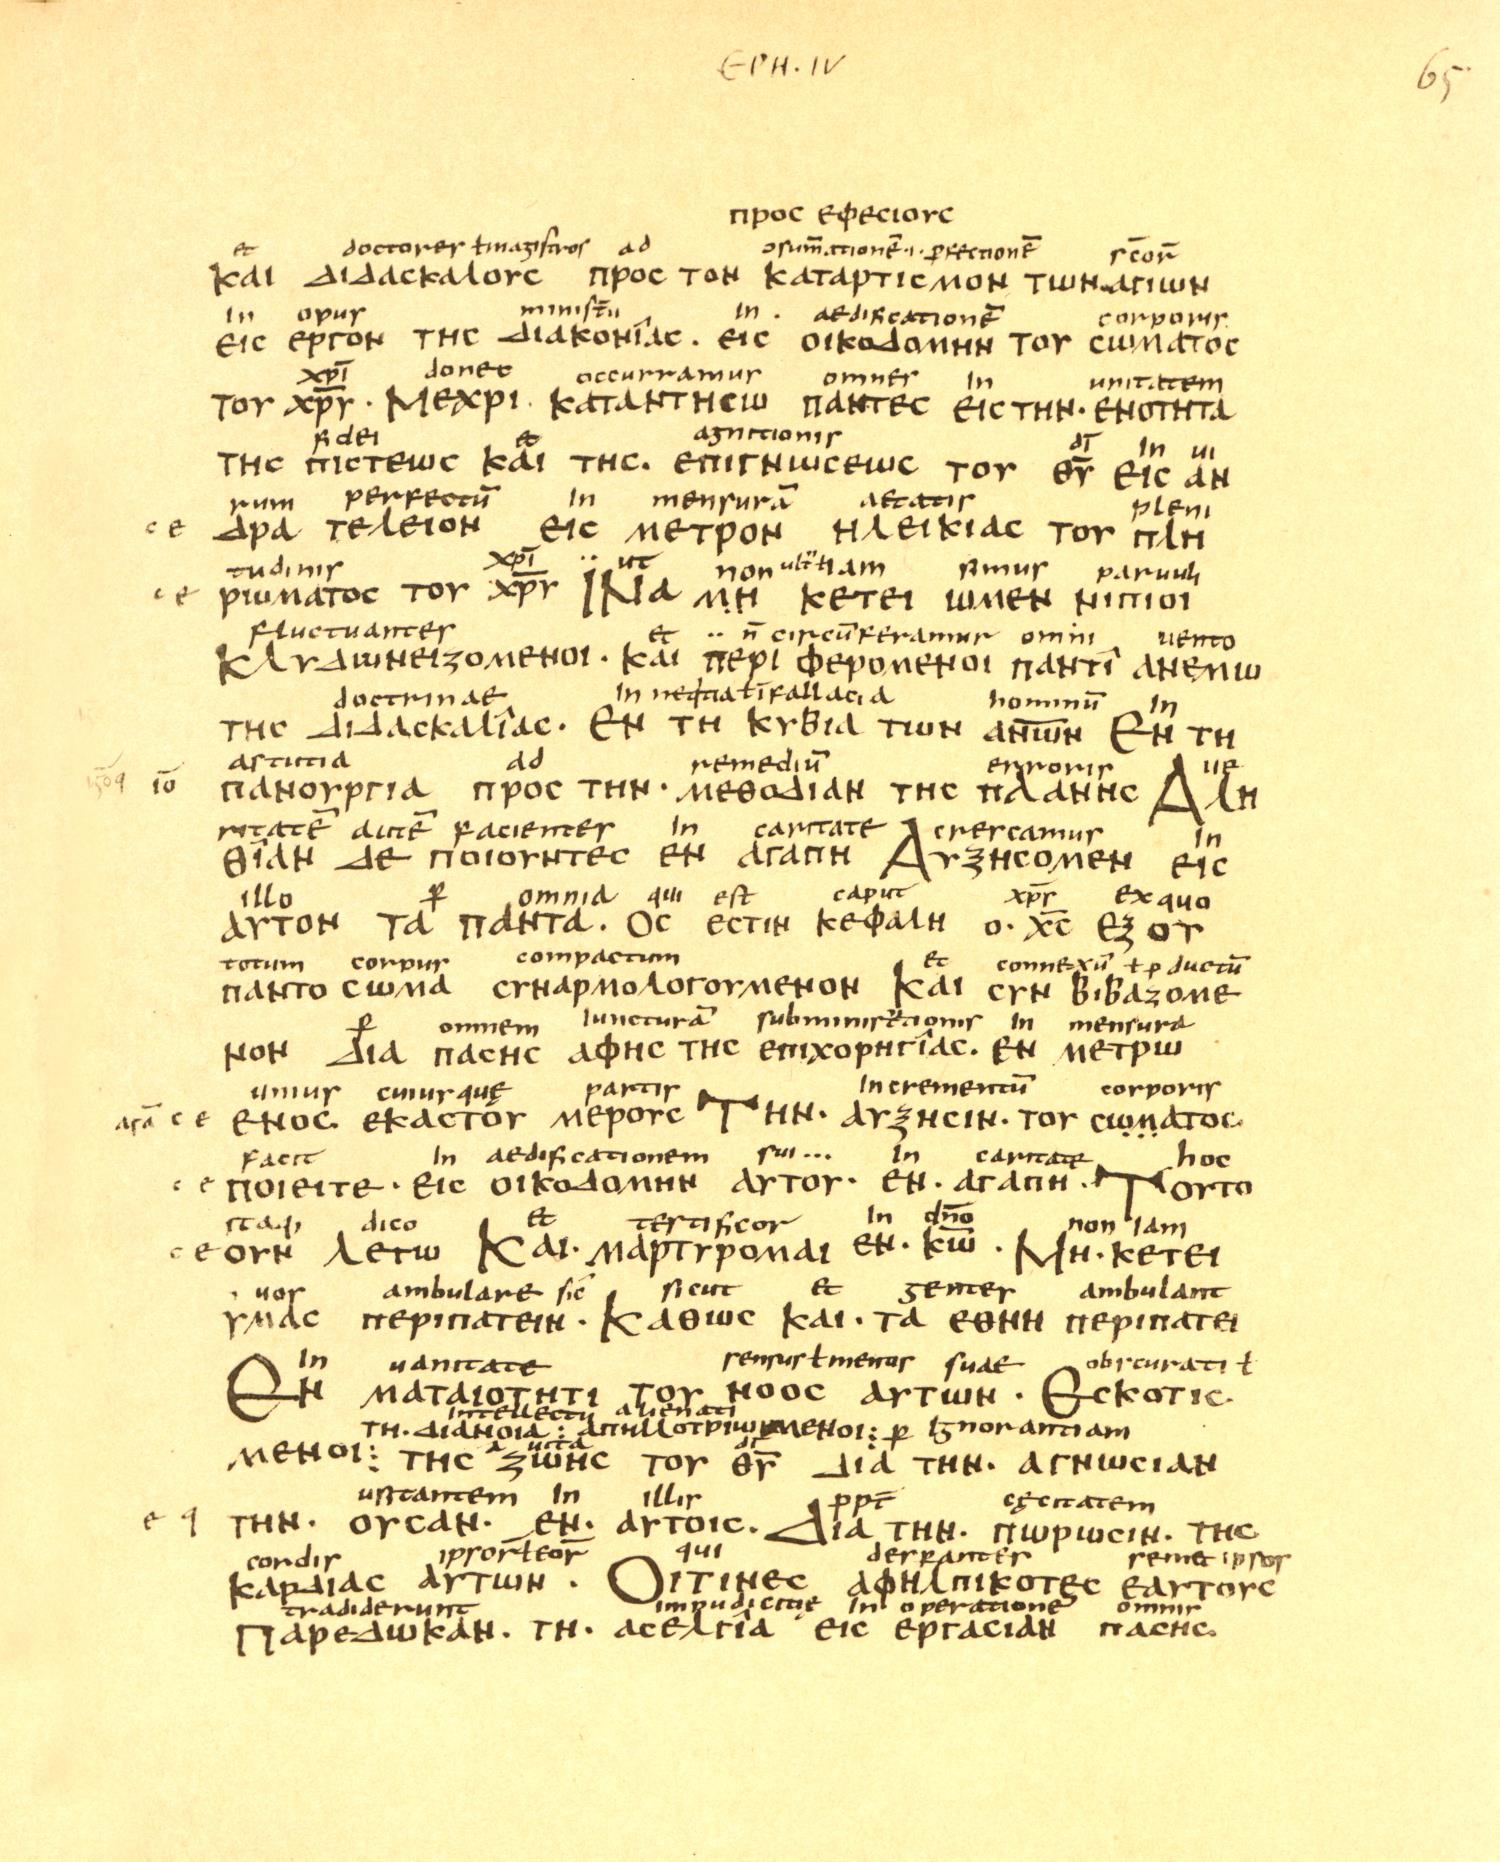 EPH. IV
65
προς εφεσιους
et doctores ƚ magistros ad ɔsum̄ationē ·i· ꝑfectionē sc̄or̄
και διδασκαλους προς τον καταρτισμον των αγιων
In opus ministrii In aedificationē corporis
εις εργον της διακονιας . εις οικοδομην του σωματος
xp̄i donec occurramus omnes In unitatem
του χρ̄υ · Μεχρι καταντησω παντες εις την · ενοτητα
fidei et agnitionis dī In ui
της πιστεως και της . επιγνωσεως του θ̄υ εις αν
rum perfectū In mensurā aetatis pleni
c e δρα τελειον εις μετρον ηλεικιας του πλη
tudinis xp̄i ut non ultra iam simus paruuli
c e ρωματος του χρ̄υ ΪΝα μη κετει ωμεν νιπιοι
fluctuantes et n̄ circūferamur omni uento
κλυδωνειζομενοι · και περι φερομενοι παντι ανεμω
doctrinae In nequitia ƚ fallacia hominū In
της διδασκαλιας . Εν τη κυβια των αν̄ων Εν τη
astutia ad remediū erroris ue
īο πανουργια προς την · μεθοδιαν της πλανης Αλη
ritatē autē facientes In caritate crescamus In
θιαν δε ποιουντες εν αγαπη Αυξησομεν εις
illo ꝑ omnia qui est caput xp̄s ex quo
αυτον τα παντα . Ος εστιν κεφαλη ο · χ̄ς εξ ου
totum corpus compactum et connexū ƚ ꝓductū
παντο σωμα συναρμολογουμενον Και συν βιβαζομε
ꝑ omnem Iuncturā subministrationis In mensura
νον δια πασης αφης της επιχορηγιας . εν μετρω
unius cuiusquę partis Incrementū corporis
c e ενος . εκαστου μερους Την · αυξησιν · του σωματος.
facit In aedificationem sui ... In caritate hoc
c e ποιειτε · εις οικοδομην αυτου · εν . αγαπη . Τουτο
itaq; dico et testificor In dn̄o non Iam
c e ουν λεγω Και · μαρτυρομαι εν . κ̄ω . Μη · κετει
uos ambulare sic̄ sicut et gentes ambulant
υμας περιπατειν · Καθως και · τα εθνη περιπατει
In uanitate sensus ƚ mentis suae obscurati ƚ
Εν ματαιοτητι του νοος αυτων . Εσκοτις·
Intellectu alienati
τη . διανοια : απηλλοτριωμενοι : ꝑ Ignorantiam
a uita dī
μενοι : της ζωης του θ̄υ δια την · αγνωσιαν
ustantem In illis ꝓpt̄ cęcitatem
e q την . ουσαν . εν . αυτοις . Δια την . πωρωσιν . της
cordis ipsor̄ ƚ eor̄ qui desperantes semet ipsos
καρδιας αυτων . Οιτινες αφηλπικοτες εαυτους
tradiderunt impudicitię In operatione omnis
Παρεδωκαν . τη . ασελγια εις εργασιαν πασης.